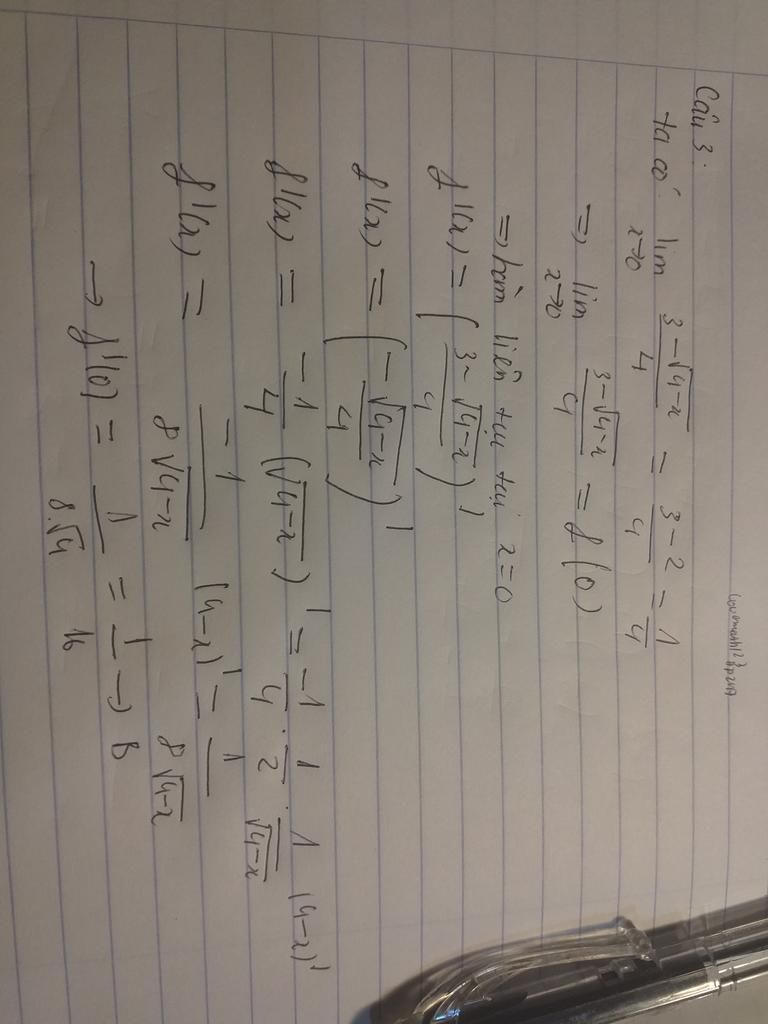 Câu 3:
ta có: lim x→0 (3-√(4-x))/4 = (3-2)/4 = 1/4
=> lim x→0 (3-√(4-x))/4 = f(0)
=> hàm liên tục tại x=0
f'(x) = ((3-√(4-x))/4)'
f'(x) = (-√(4-x)/4)'
f'(x) = -1/4 (√(4-x))' = -1/4 . 1/2 . 1/√(4-x) (4-x)'
f'(x) = -1/(8√(4-x)) (4-x)' = 1/(8√(4-x))
→ f'(0) = 1/(8.√4) = 1/16 → B